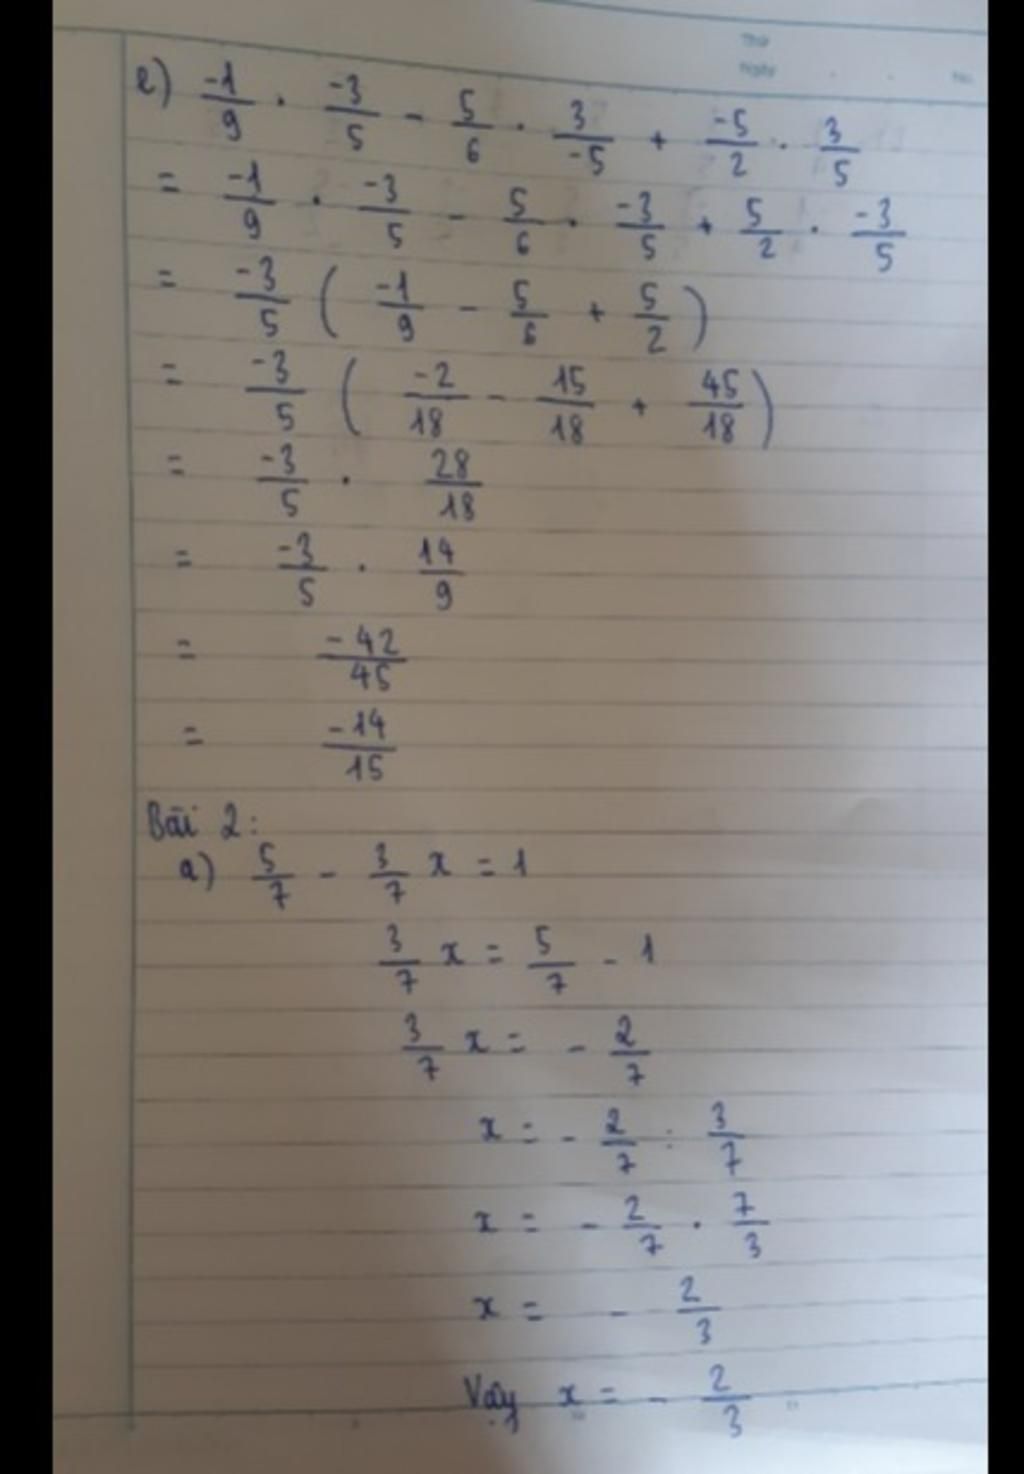 Thứ
Ngày . . No.
e) -1/9 . -3/5 - 5/6 . 3/-5 + -5/2 . 3/5
= -1/9 . -3/5 - 5/6 . -3/5 + 5/2 . -3/5
= -3/5 ( -1/9 - 5/6 + 5/2 )
= -3/5 ( -2/18 - 15/18 + 45/18 )
= -3/5 . 28/18
= -3/5 . 14/9
= -42/45
= -14/15
Bài 2:
a) 5/7 - 3/7 x = 1
3/7 x = 5/7 - 1
3/7 x = - 2/7
x = - 2/7 : 3/7
x = - 2/7 . 7/3
x = - 2/3
Vậy x = - 2/3